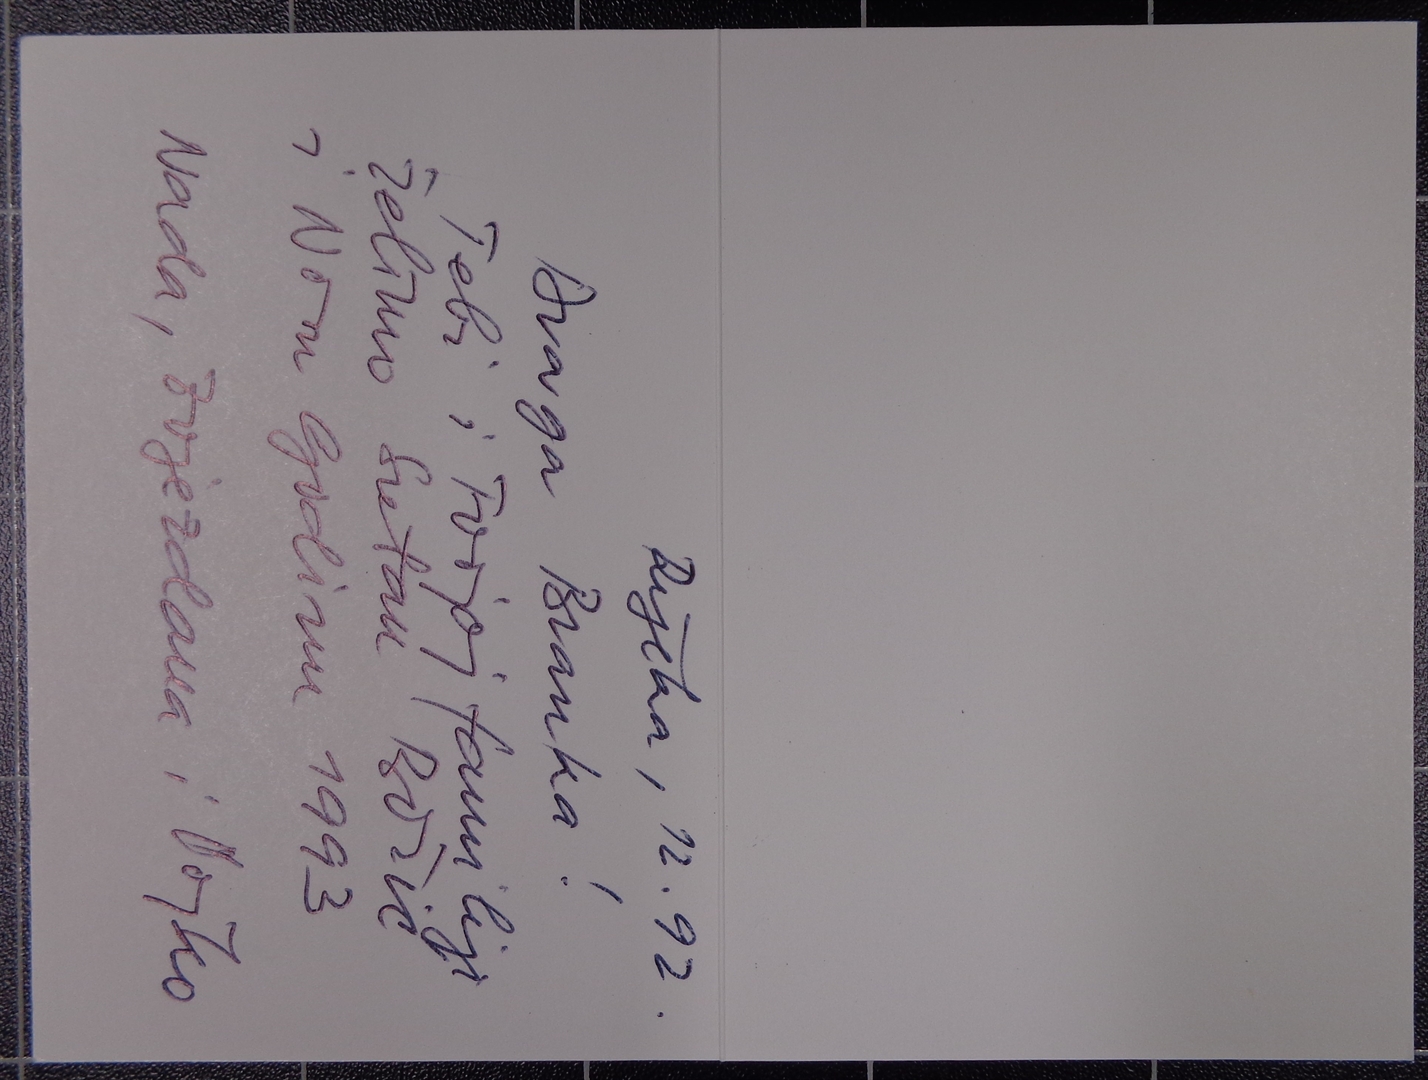 Rijeka, 12.92.
Draga Branka!
Tebi i tvojoj familiji
želimo sretan Božić
i Novu Godinu 1993
Nada, Zvjezdana i Vojko